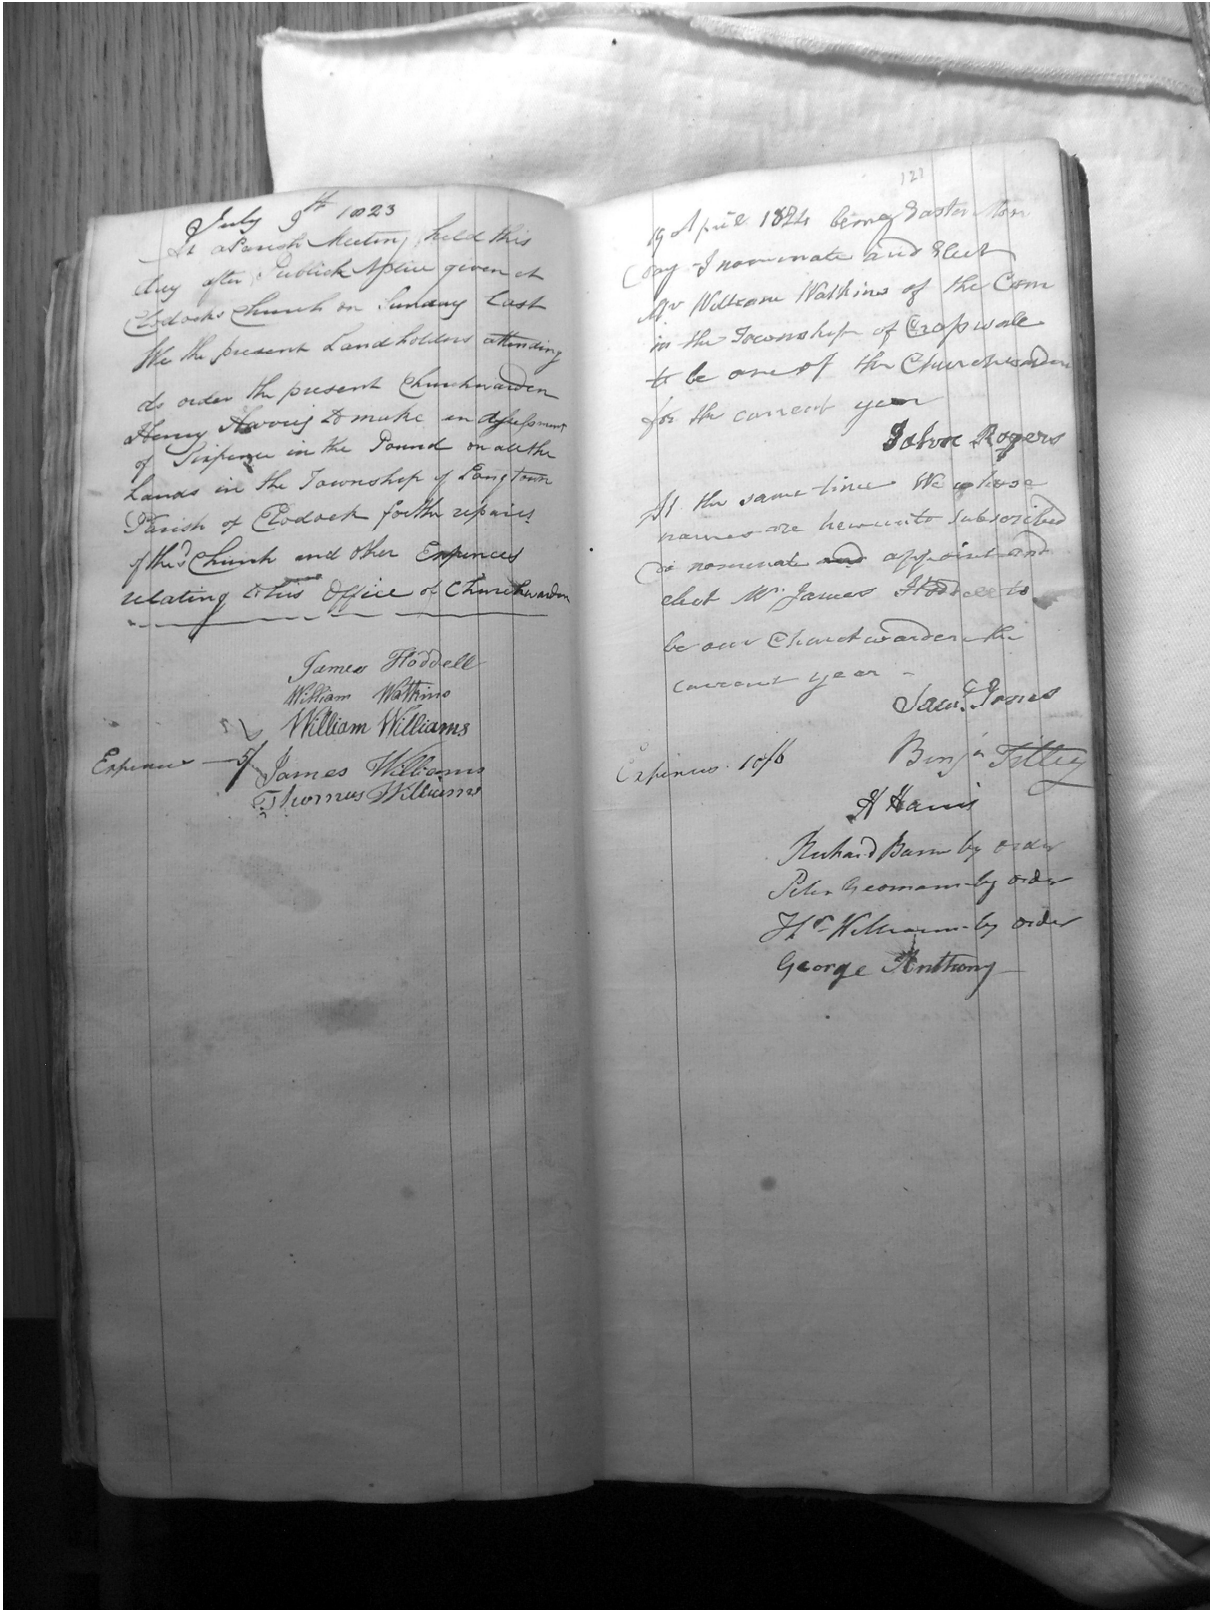 July 9th 1823
At a Parish Meeting held this
day after Publick Notice given at
Clodock Church on Sunday last
We the present Landholders attending
do order the present Churchwarden
Henry Harris to make an Assessment
of Sixpence in the Pound on all the
Lands in the Township of Longtown
Parish of Clodock for the repairs
of the sd Church and other Expences
relating to his Office of Churchwarden
James Hoddell
William Watkins
William Williams
Expences 5/
James Williams
Thomas Williams
121
19 April 1824 being Easter Mon
day I nominate and Elect
Mr William Watkins of the Cwm
in the Township of Craswall
to be one of the Churchwardens
for the current year
John Rogers
At the same time We whose
names are hereunto subscribed
do nominate and appoint and
elect Mr James Hoddell to
be our Churchwarden the
current year
Saml Jones
Expences 10/6
Benjn Tilley
H Harris
Richard by order
Peter by order
Thos Williams by order
George Anthony